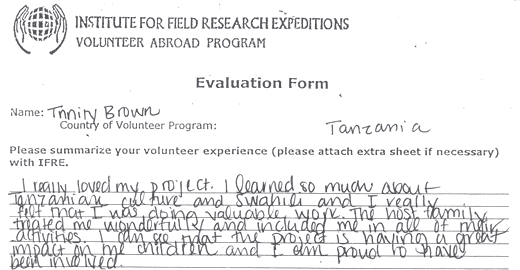 INSTITUTE FOR FIELD RESEARCH EXPEDITIONS
VOLUNTEER ABROAD PROGRAM
Evaluation Form
Name: Trinity Brown
Country of Volunteer Program: Tanzania
Please summarize your volunteer experience (please attach extra sheet if necessary)
with IFRE.
I really loved my project. I learned so much about
Tanzanian culture and Swahili and I really
felt that I was doing valuable work. The host family
treated me wonderfully and included me in all of their
activities. I can see that the project is having a great
impact on the children and I am proud to have
been involved.